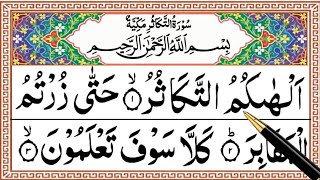 سُوْرَةُ التَّكَاثُرِ مَكِّيَّةٌ
بِسْمِ اللّٰهِ الرَّحْمٰنِ الرَّحِيْمِ
اَلْهٰىكُمُ التَّكَاثُرُۙ ۱ حَتّٰى زُرْتُمُ
الْمَقَابِرَؕ ۲ كَلَّا سَوْفَ تَعْلَمُوْنَۙ ۳